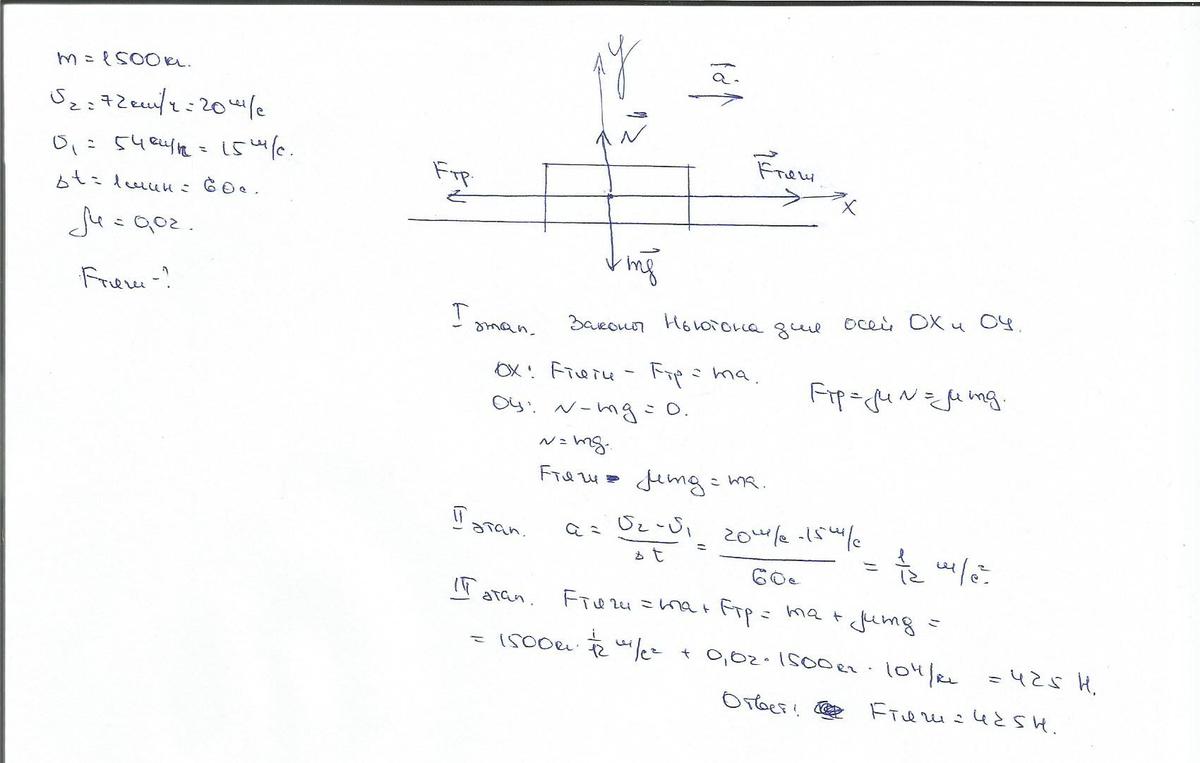 m = 1500 кг.
υ₂ = 72 км/ч = 20 м/с
υ₁ = 54 км/ч = 15 м/с.
Δt = 1 мин = 60 с.
μ = 0,02.
Fтяги - ?
y
a.
N
Fтр.
Fтяги.
x
mg
I этап. Законы Ньютона для осей OX и OY.
OX: Fтяги - Fтр = ma.
Fтр = μN = μmg.
OY: N - mg = 0.
N = mg.
Fтяги - μmg = ma.
II этап. a = (υ₂ - υ₁)/Δt = (20 м/с - 15 м/с)/60 с = 1/12 м/с².
III этап. Fтяги = ma + Fтр = ma + μmg =
= 1500 кг · 1/12 м/с² + 0,02 · 1500 кг · 10 Н/кг = 425 Н.
Ответ: Fтяги = 425 Н.